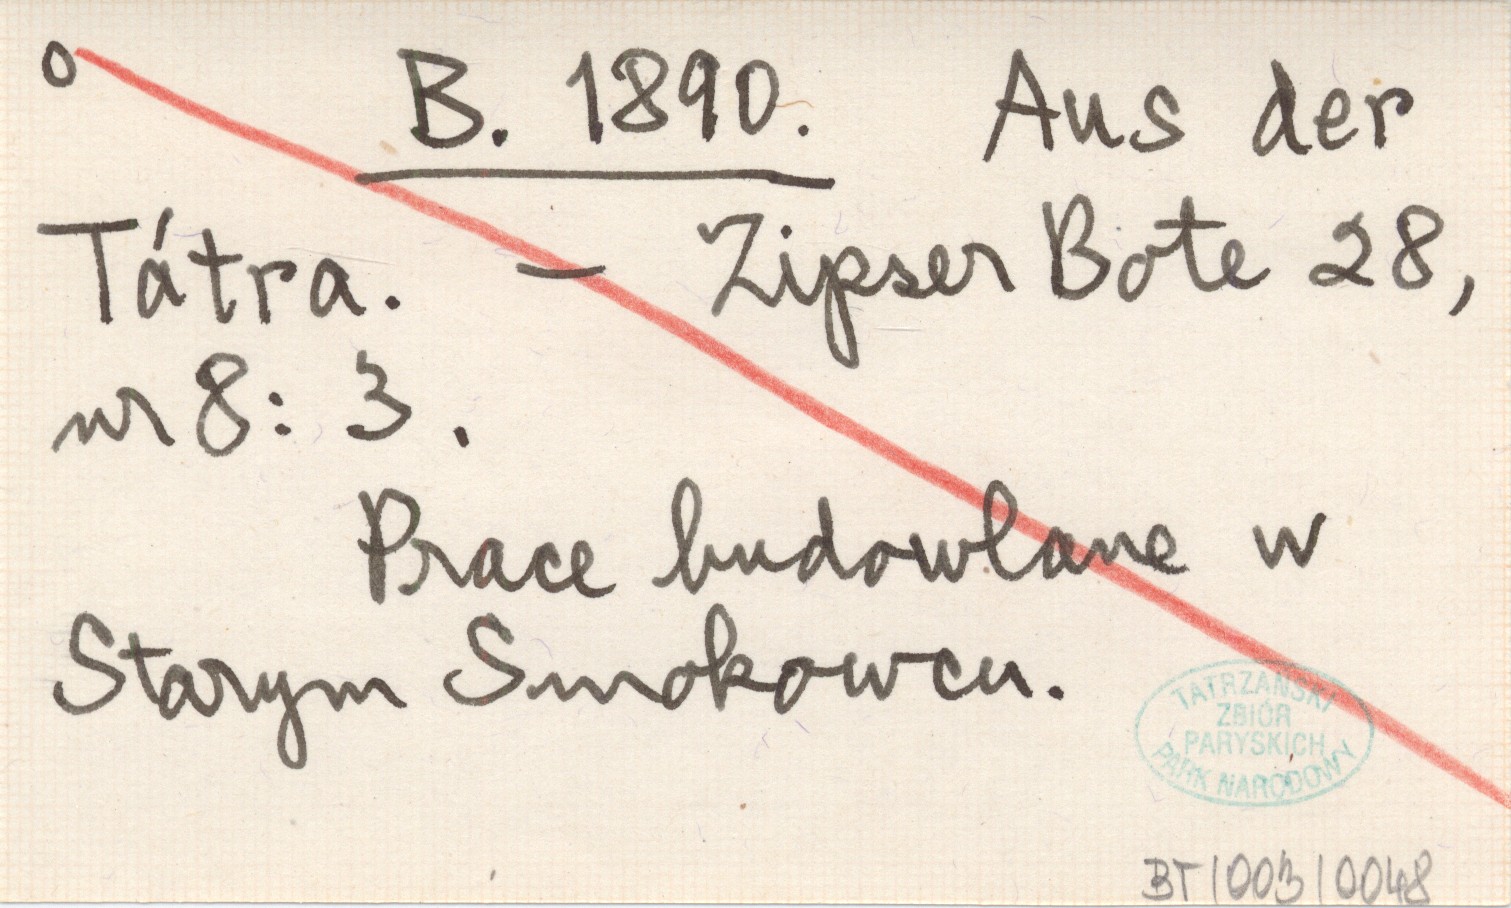 o B. 1890. Aus der
Tátra. — Zipser Bote 28,
nr 8: 3.
Prace budowlane w
Starym Smokowcu.
TATRZAŃSKI
ZBIÓR
PARYSKICH
PARK NARODOWY
BT/003/0048